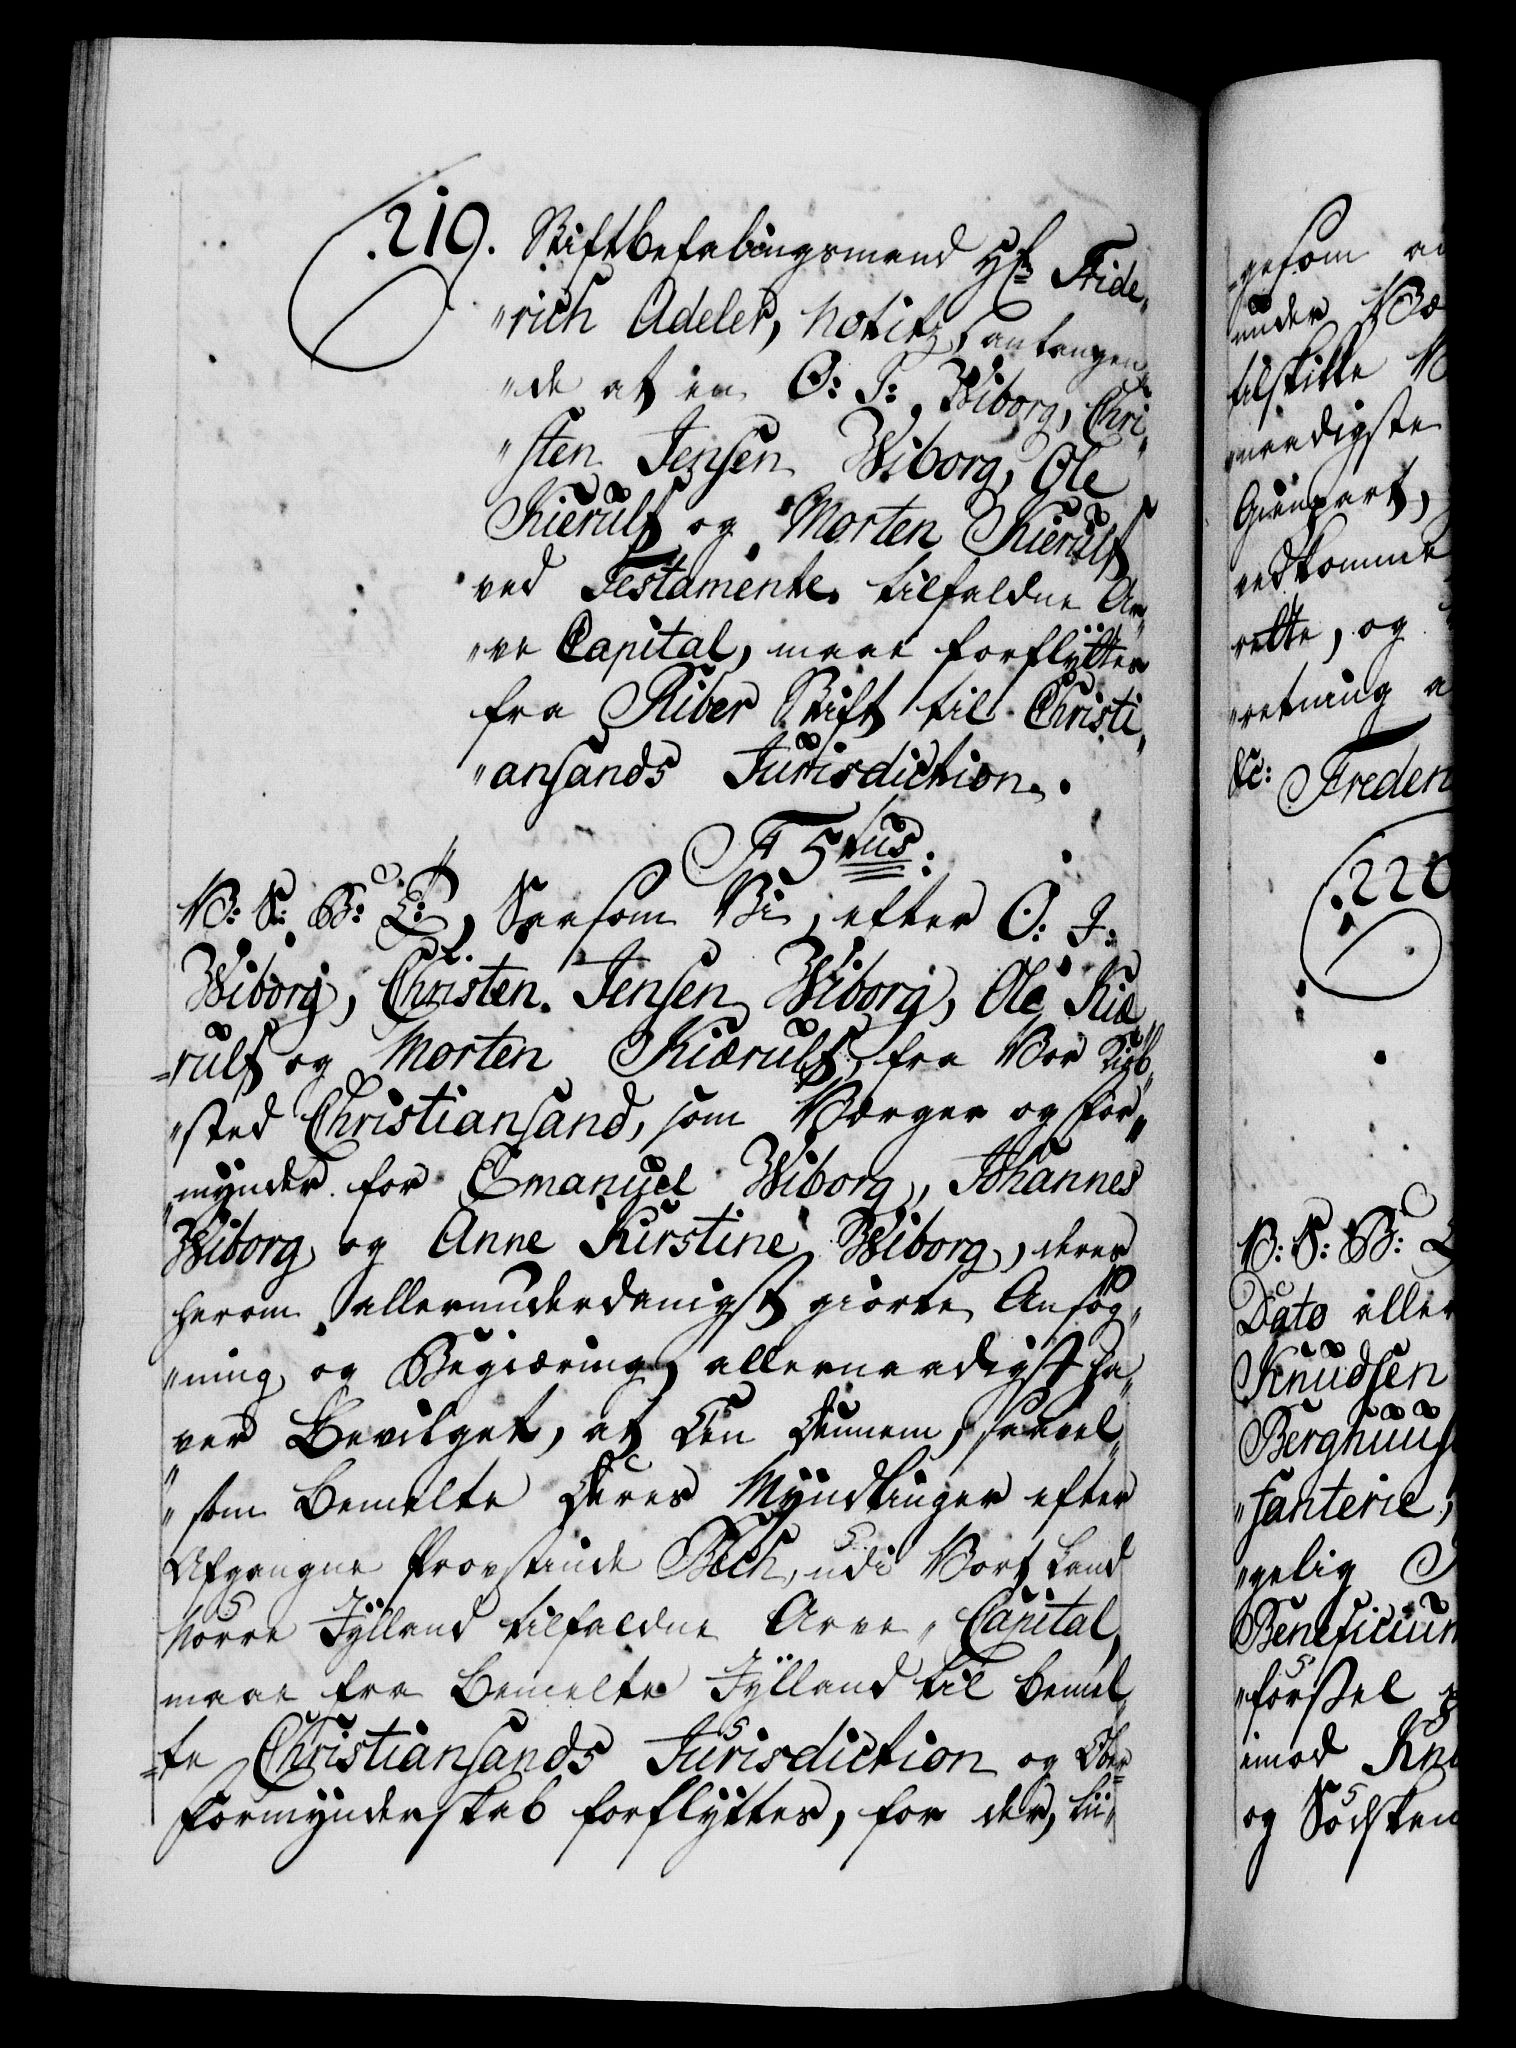 219. Stiftbefalingsmand Hr. Fride„
„rich Adeler, Notitz, antangen„
„de at en O: J: Wiborg, Chri„
„sten Jensen Wiborg, Ole
Kierulf og Morten Kierulf
ved Testamente tilfaldne Ar„
„ve Capital, maae forflÿttes
fra Riber Stift til Christi„
„ansands Jurisdiction.
F 5tus:
V: S: G: V:, Saasom Vi, efter O: J:
Wiborg, Christen Jensen Wiborg, Ole Kiæ„
„rulf og Morten Kiærulf, fra Vor Kiøb„
„sted Christiansand, som Værger og For„
„mynder for Emanuel Wiborg, Johannes
Wiborg og Anne Kirstine Wiborg, deres
herom allerunderdanigst giorte Ansøg„
„ning og Begiæring, allernaadigst ha„
„ver Bevilget, at den dennem, saavel„
„som bemelte deres Myndlinger efter
Afgangne Provstinde Bech, udi Vort Land
Nørre Jÿlland tilfaldne Arve Capital,
maae fra bemelte Jÿlland til bemel„
„te Christiansands Jurisdiction og Ober„
Formynderskab forflyttes, for der, lii„
=gesom
under
tilskikke
„naadigste
Gienpart,
vedkomme
rette, og
„retning
&c: Freden
.220
V: S: G:
Dato aller
Knudsen
Berghuus
„fanterie,
„gelig
Beneficium
„førsel
imod Knu
og Sødsken